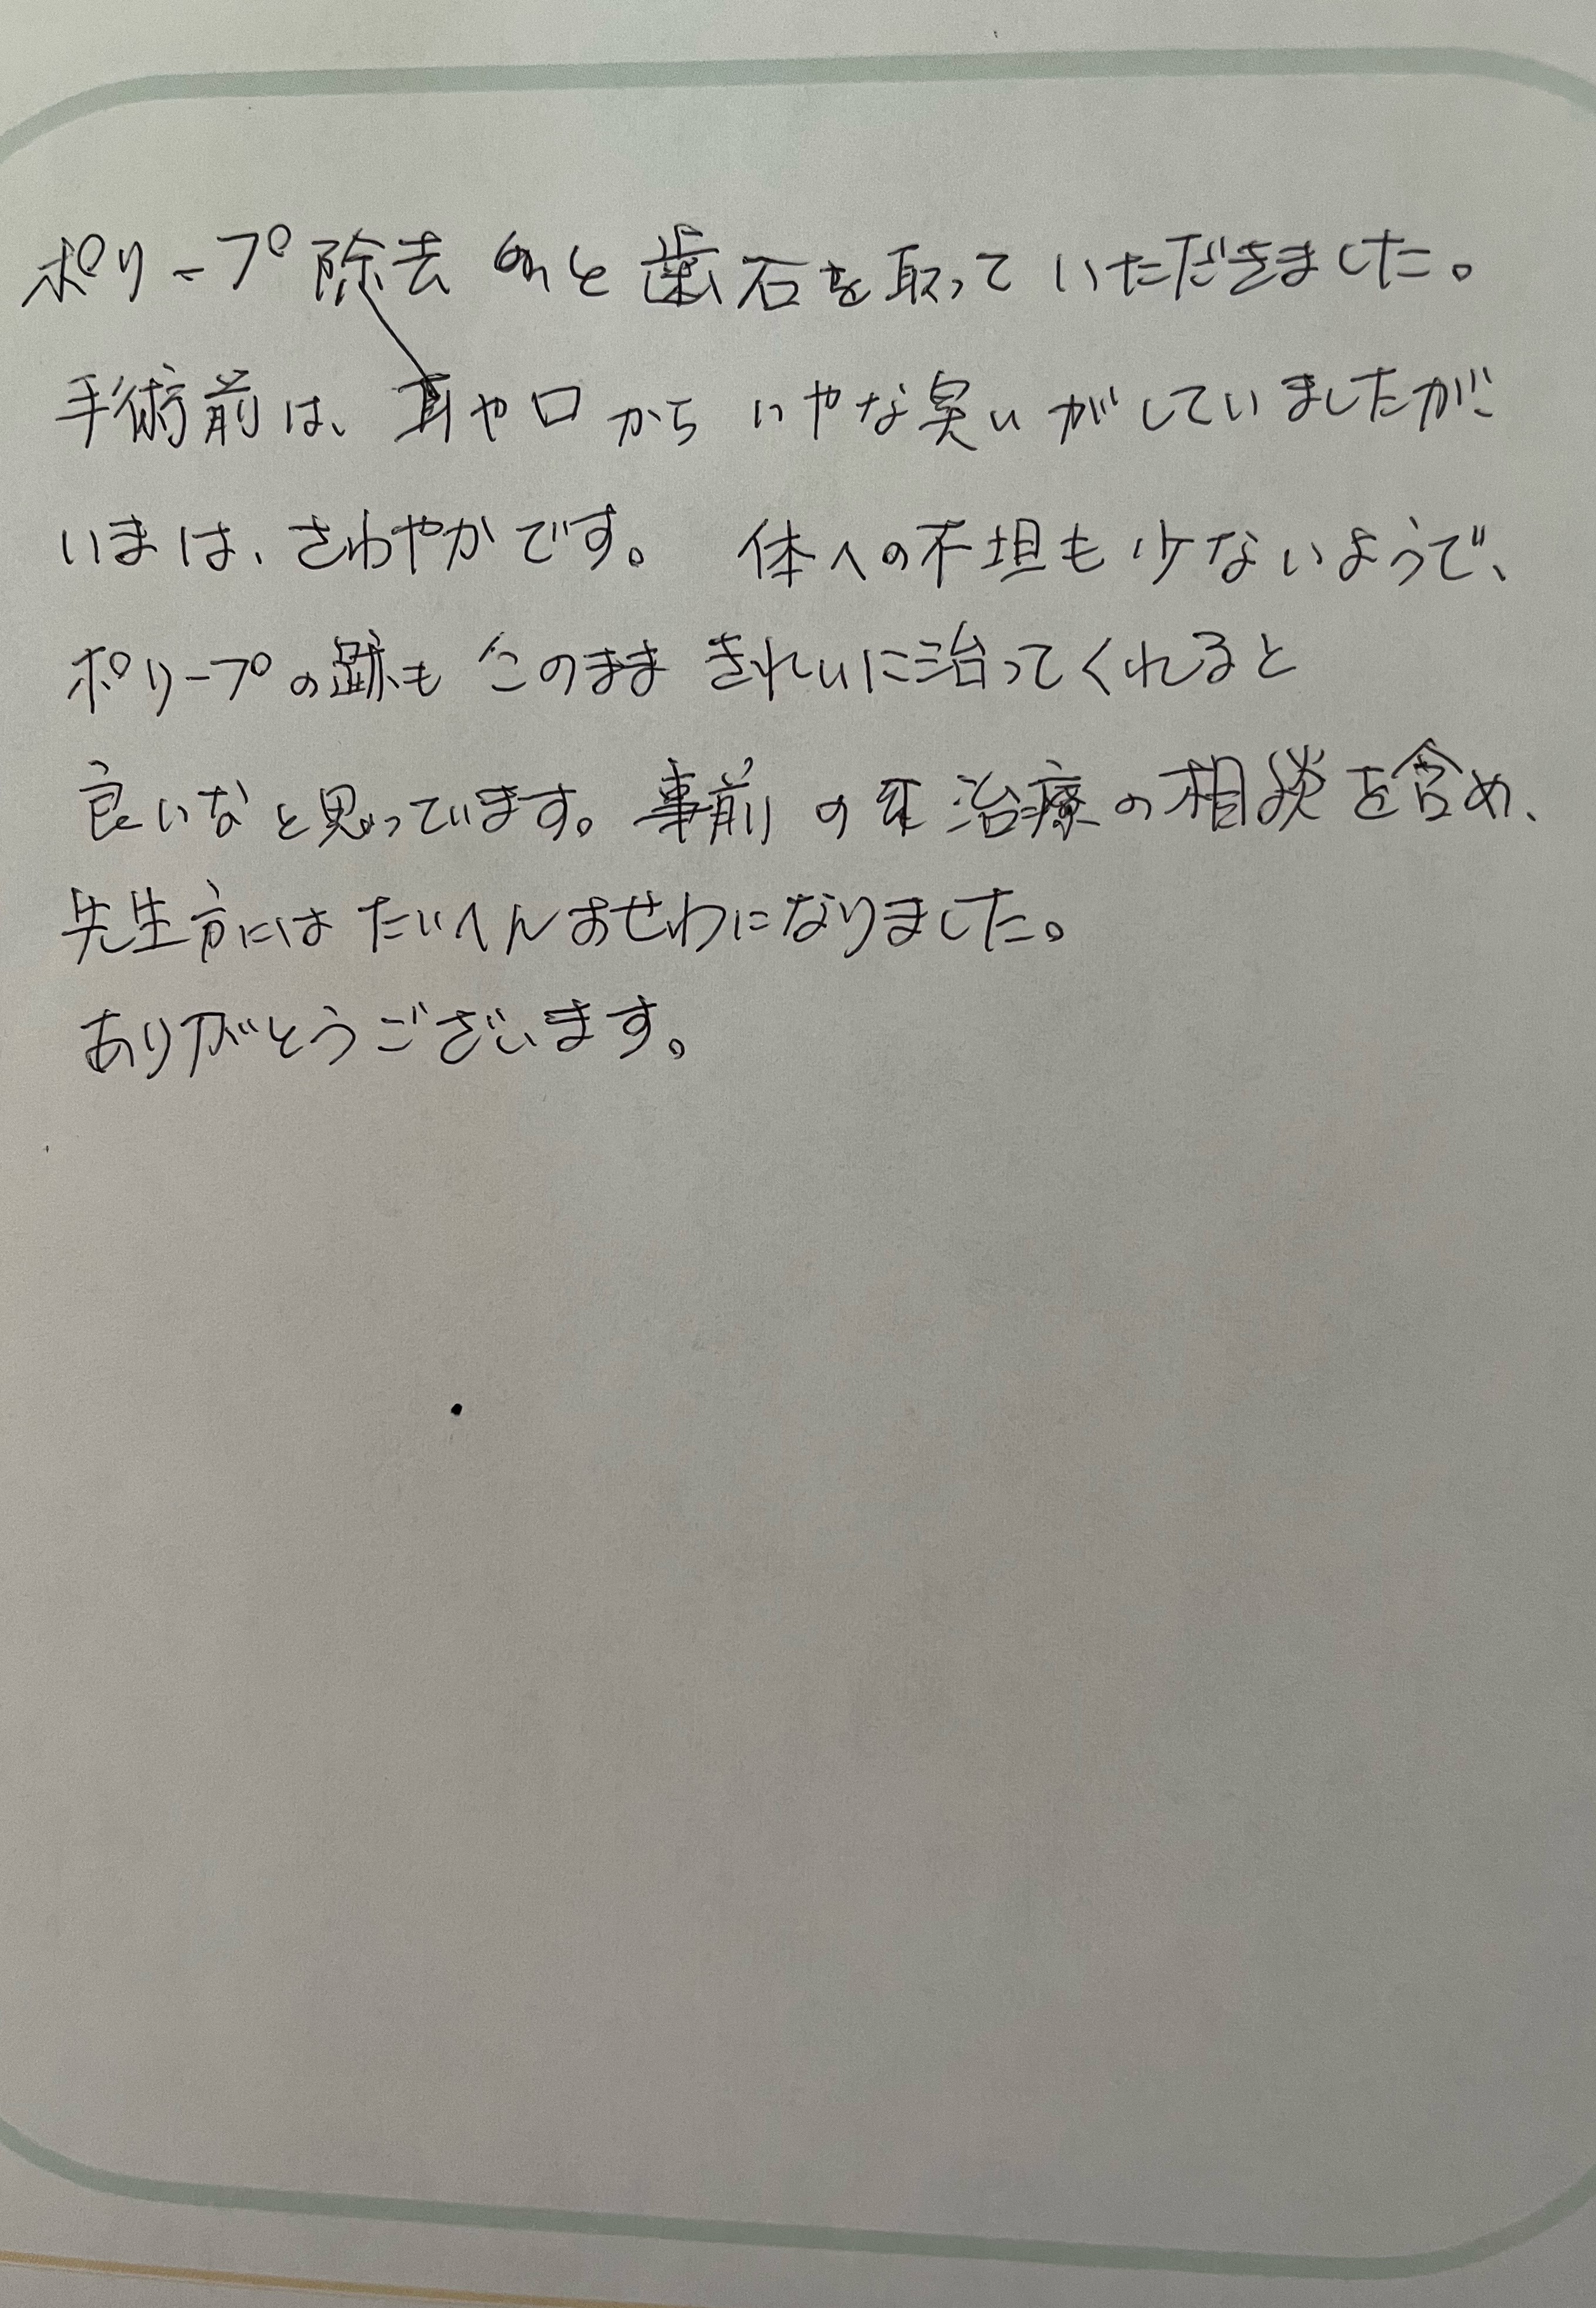 ポリープ除去と歯石を取っていただきました。
手術前は、耳や口からいやな臭いがしていましたが
いまは、さわやかです。 体への不坦も少ないようで、
ポリープの跡もこのままきれいに治ってくれると
良いなと思っています。事前の治療の相談を含め、
先生方にはたいへんおせわになりました。
ありがとうございます。